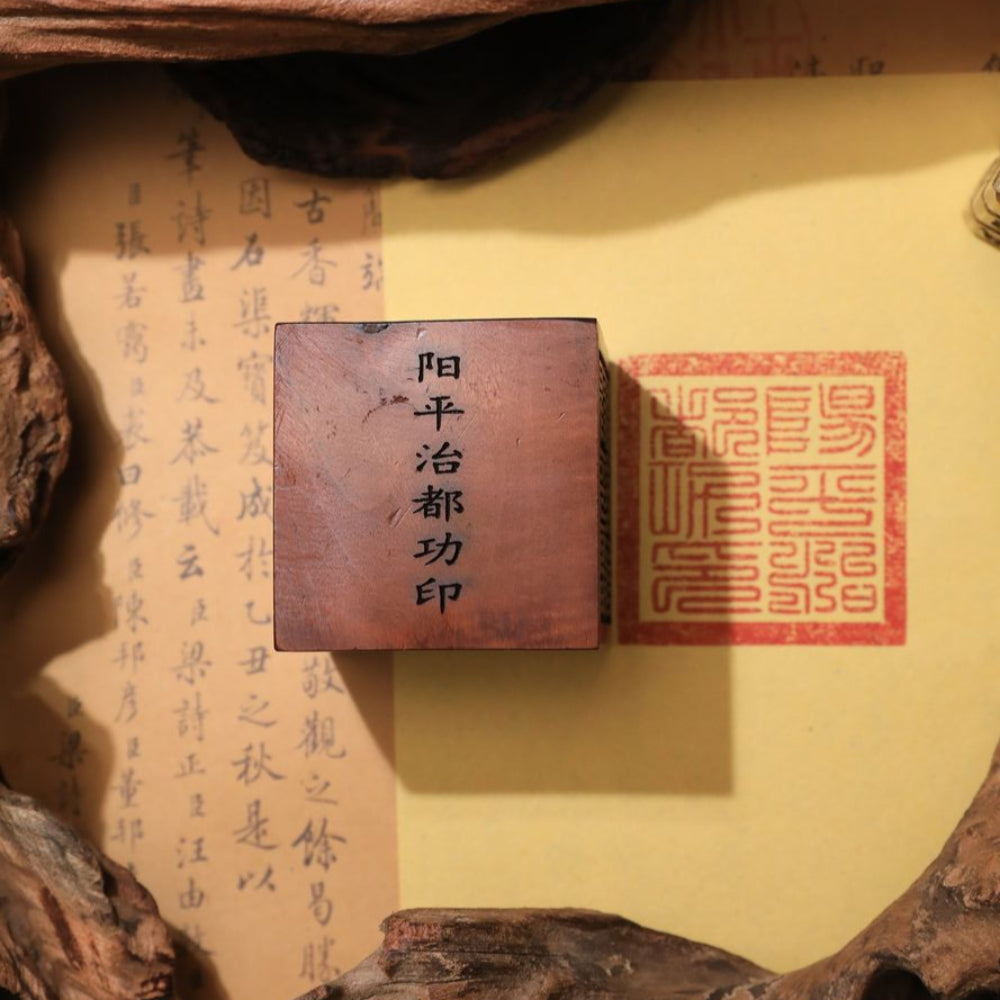 阳平治都功印
陽平治
都功印
古香
敬觀之餘曷勝
因石渠寶笈成於乙丑之秋是以
筆詩畫未及恭載云臣梁詩正臣汪由
臣張若靄臣裘曰修臣陳邦彥臣董邦
臣梁詩